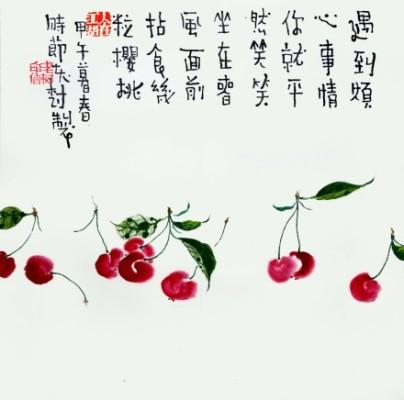 遇到煩
心事情
你就平
然笑笑
坐在春
風面前
拈食幾
粒櫻桃
人在江湖
甲午暮春
時節封製